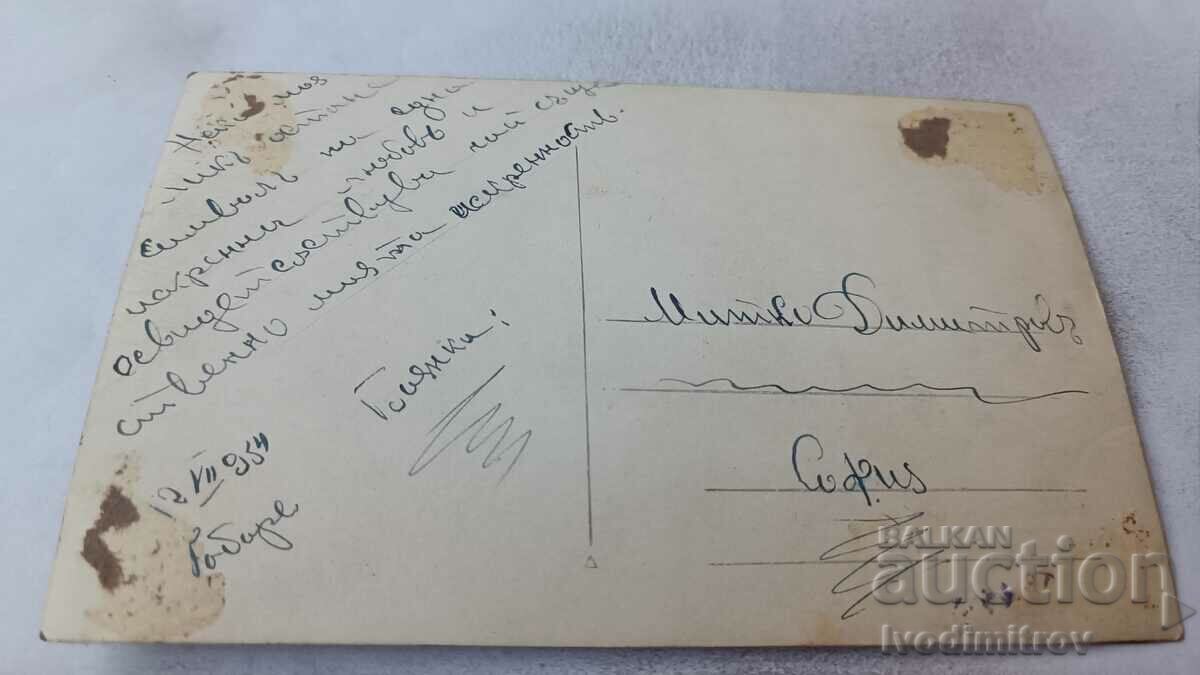 Нека моя
ликъ остане
символъ на една
искренна любовъ и
освидетелствува най съще
ственно моята искренность.
Божанка!
12 VII 954
Габаре
Митко Димитровъ
София
BALKAN
auction
Ivodimitrov